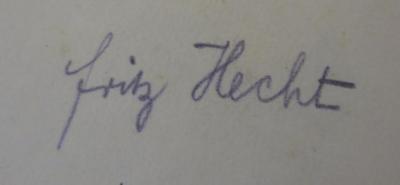 Fritz Hecht